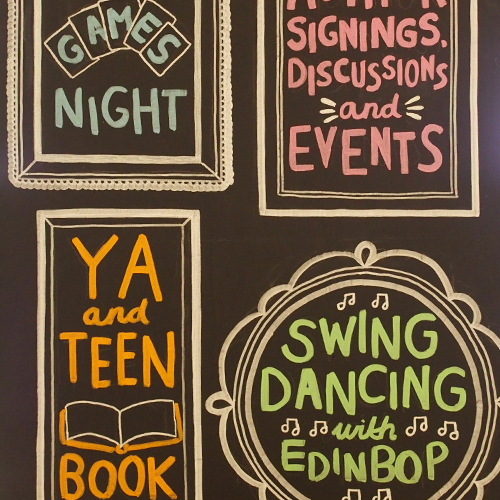 GAMES
NIGHT
AUTHOR
SIGNINGS,
DISCUSSIONS
and
EVENTS
YA
and
TEEN
BOOK
SWING
DANCING
with
EDINBOP